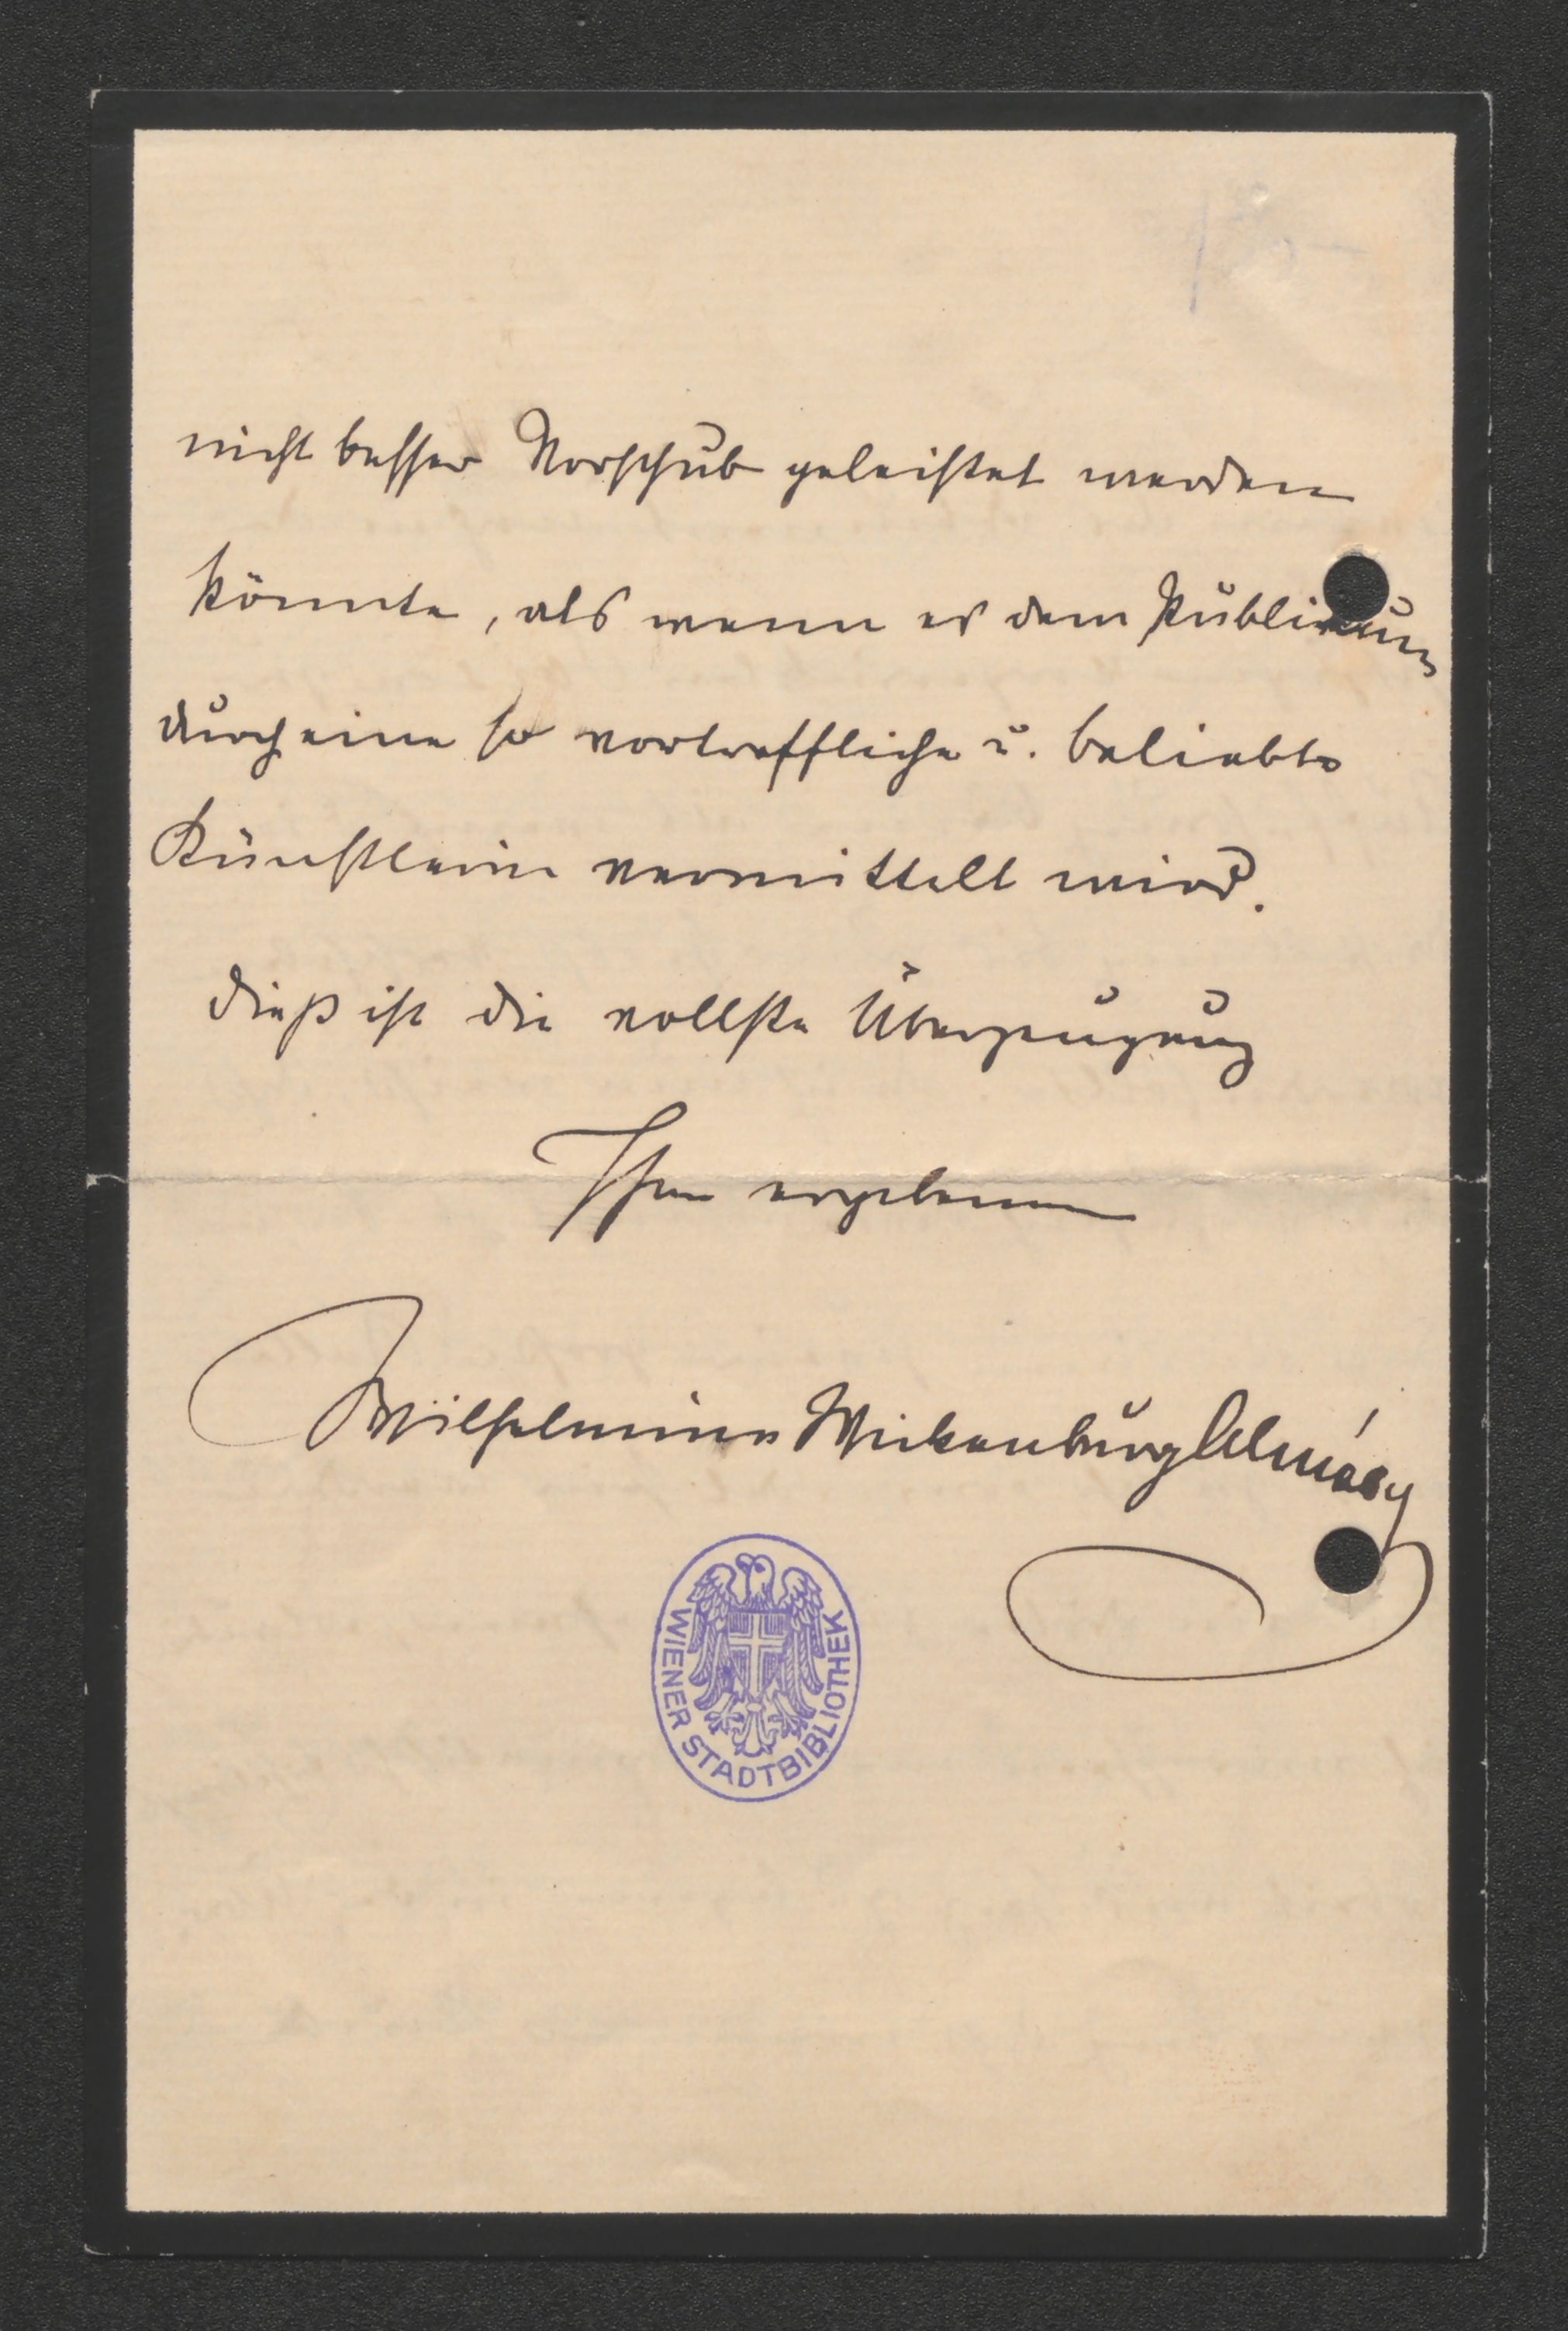 nicht besser Vorschub geleistet werden
könnte, als wenn es dem Publikum
durch eine so vortreffliche u. beliebte
Künstlerin vermittelt wird.
Dieß ist die vollste Überzeugung
Ihrer ergebenen
Wilhelmine Wickenburg Almásy
WIENER STADTBIBLIOTHEK